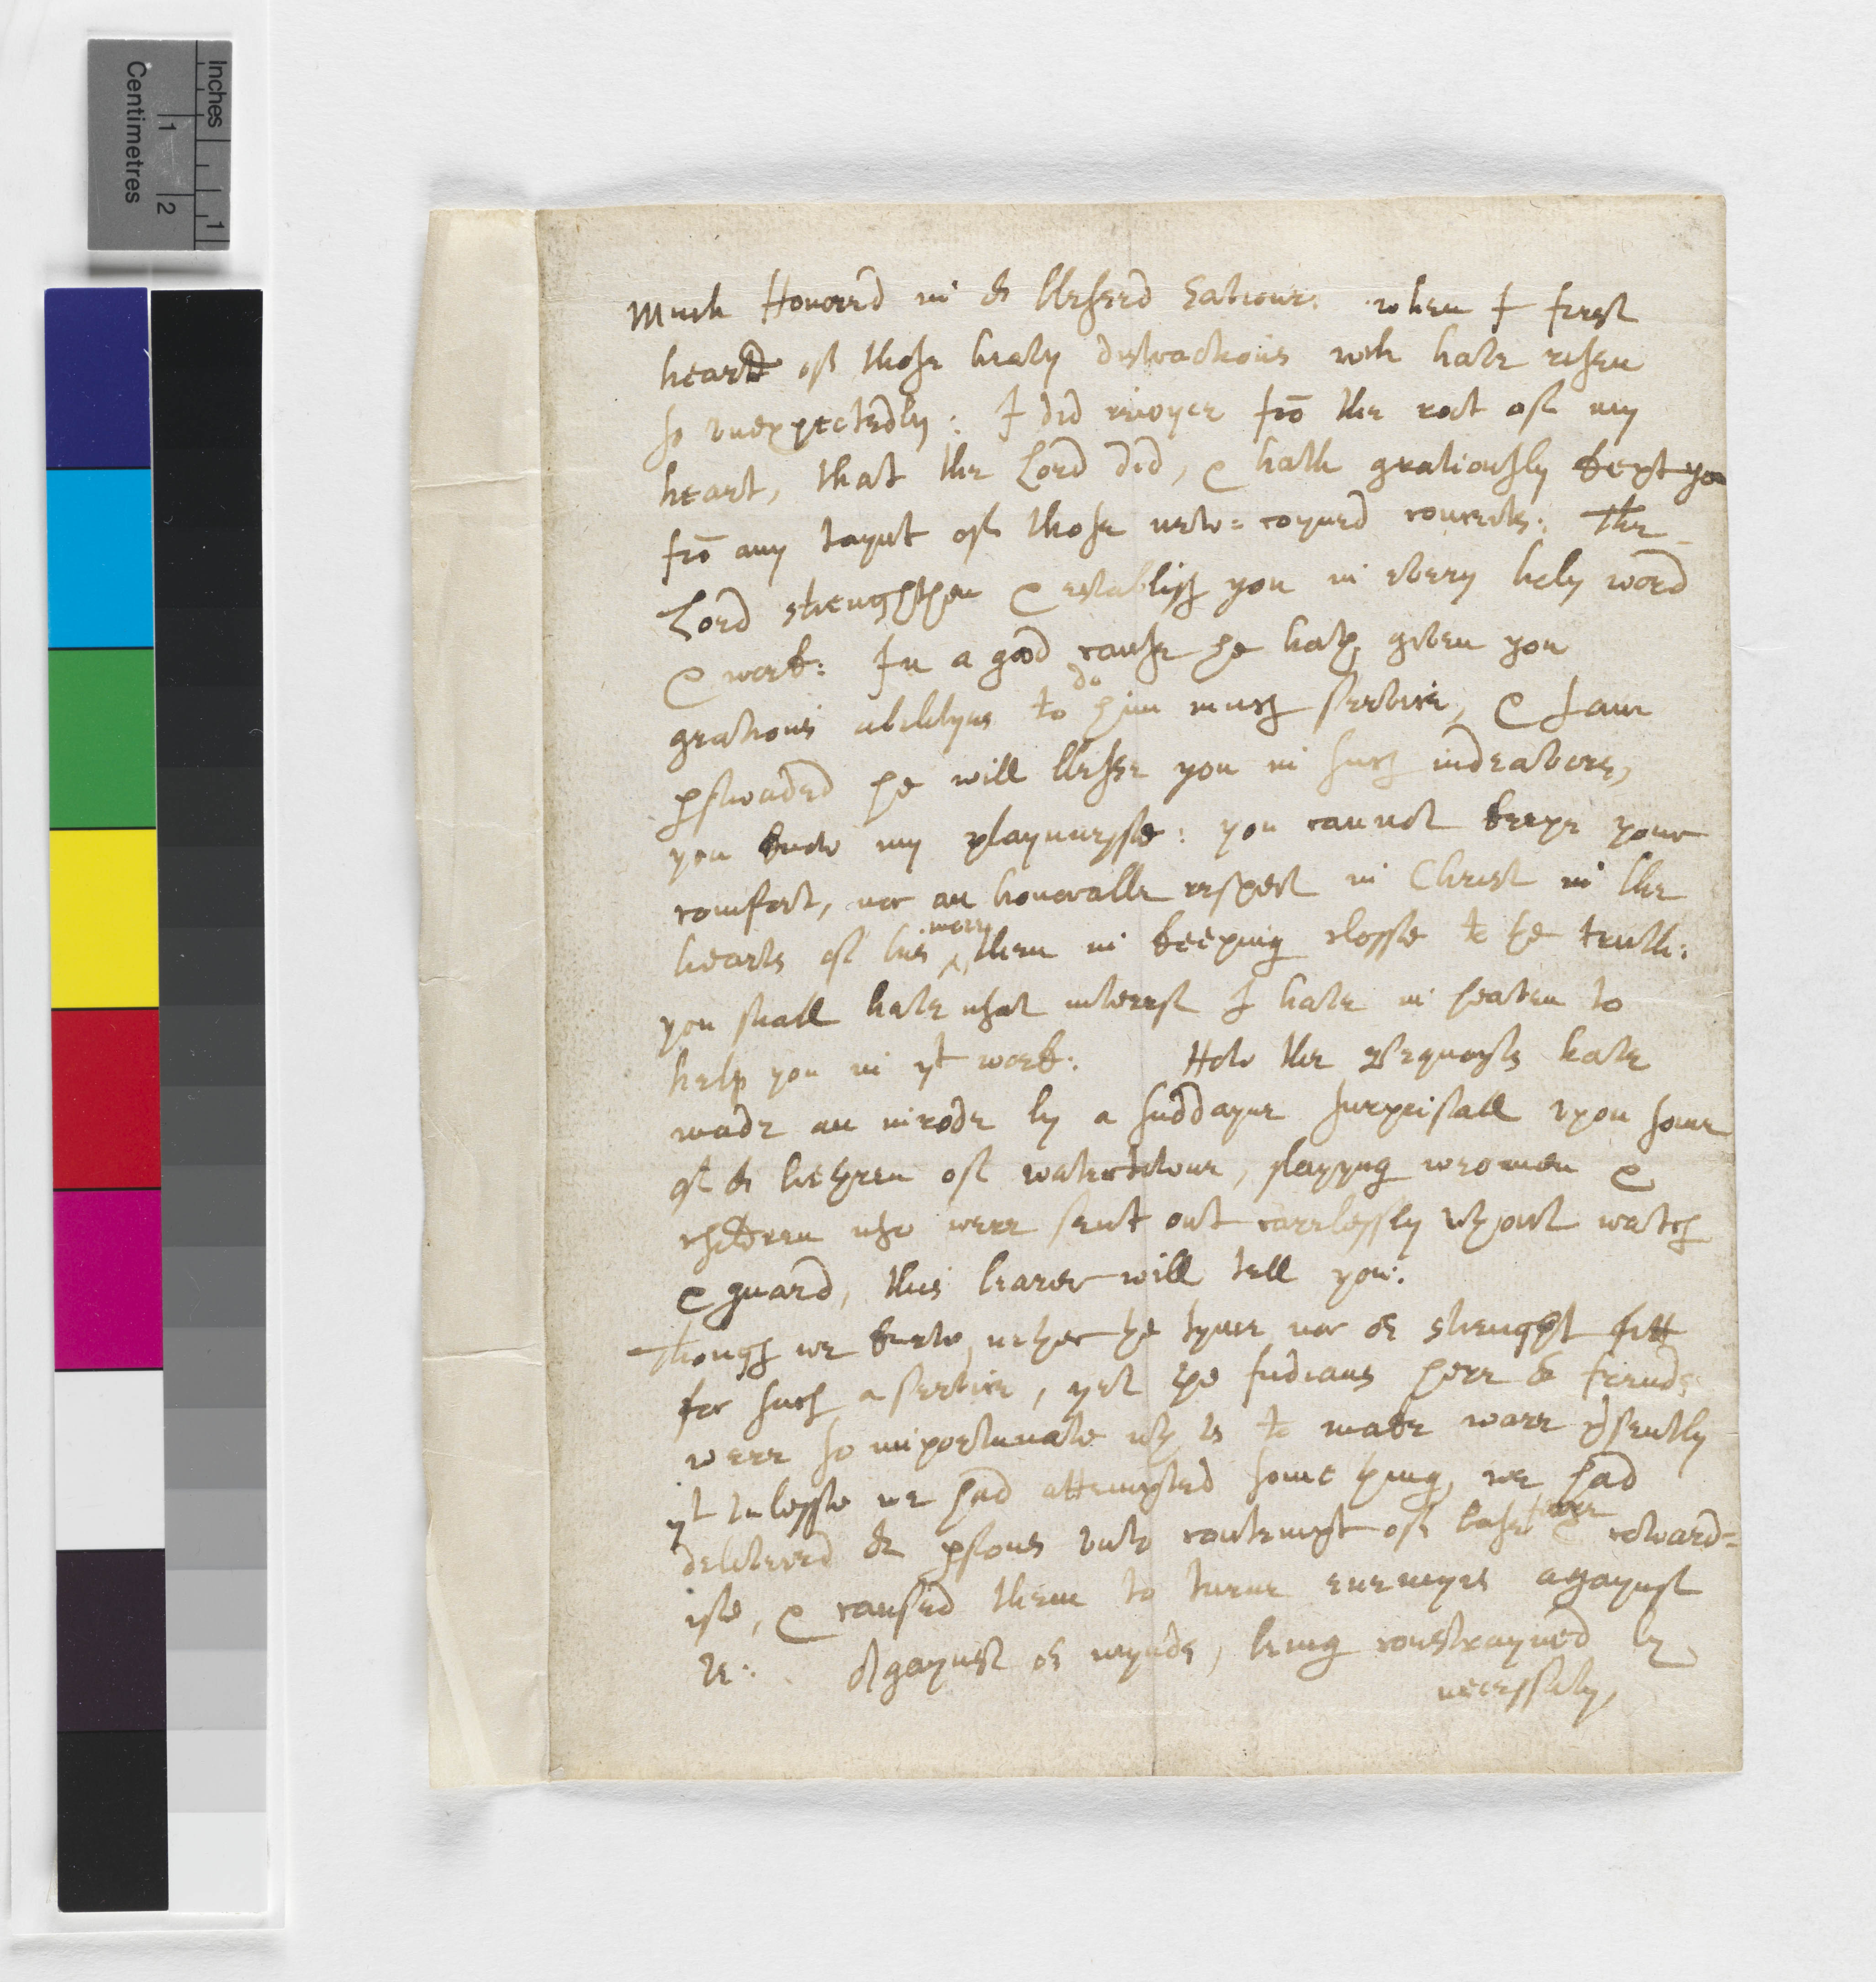 Inches
Centimetres
1
2
1
Much Honored in or blessed Saviour: when I first
heard of those heavy distractions wch have risen
so vnexpectedly: I did reioyce frō the root of my
heart, that the Lord did, & hath gratiously kept you
frō any taynt of those new-coyned conceits: The
Lord strenghthen & establish you in every holy word
& work: In a good cause he hath given you
gratious abilityes to do him much service, & I am
pswaded he will blesse you in such indeavors,
you know my playnnesse: you cannot keepe your
comfort, nor an honorable respect in Christ in the
hearts of his more then in keeping closse to the truth:
you shall have what interest I have in heaven to
help you in yt work: How the Pequoyts have
made an inrode by a suddayne surprisall vpon some
of or brethren of watertowne, slayyng weomen &
children who were sent out carelessly wthout watch
& guard, this bearer will tell you:
Though we knew nether the tyme nor or strenght fitt
for such a service, yet the Indians here or friends
were so importunate wth vs to make warr presently
yt vnlesse we had attempted some thing, we had
delivered or psons vnto contempt of base & coward-
ise, & caused them to turne enemyes agaynst
vs: Agaynst or mynds, being constrayned by
necessity,